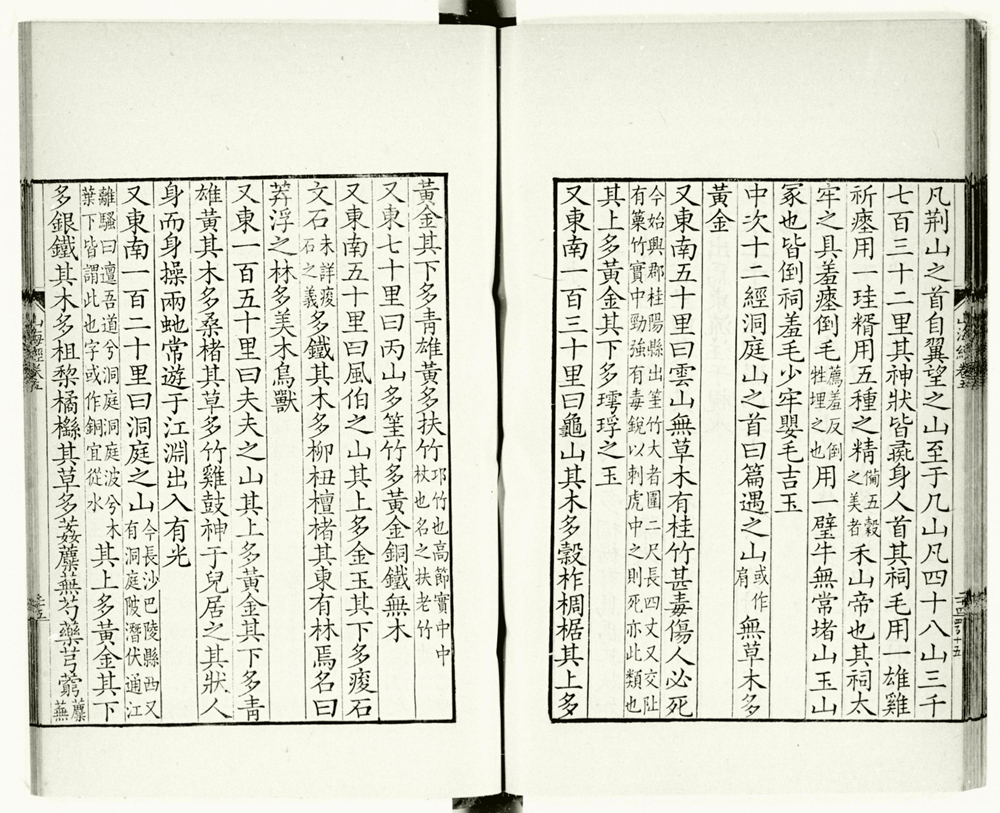 凡荆山之首自翼望之山至于几山凡四十八山三千
七百三十二里其神狀皆彘身人首其祠毛用一雄雞
祈瘞用一珪糈用五種之精備五穀之美者禾山帝也其祠太
牢之具羞瘞倒毛薦羞反倒牲埋之也用一璧牛無常堵山玉山
冢也皆倒祠羞毛少牢嬰毛吉玉
中次十二經洞庭山之首曰篇遇之山或作肩無草木多
黃金
又東南五十里曰雲山無草木有桂竹甚毒傷人必死
今始興郡桂陽縣出筀竹大者圍二尺長四丈又交阯
有篥竹實中勁強有毒銳以刺虎中之則死亦此類也
其上多黃金其下多㻬琈之玉
又東南一百三十里曰龜山其木多榖柞椆椐其上多
黃金其下多青雄黃多扶竹邛竹也高節實中中杖也名之扶老竹
又東七十里曰丙山多筀竹多黃金銅鐵無木
又東南五十里曰風伯之山其上多金玉其下多痠石
文石未詳痠石之義多鐵其木多柳杻檀楮其東有林焉名曰
莽浮之林多美木鳥獸
又東一百五十里曰夫夫之山其上多黃金其下多青
雄黃其木多桑楮其草多竹雞鼓神于兒居之其狀人
身而身操兩虵常遊于江淵出入有光
又東南一百二十里曰洞庭之山今長沙巴陵縣西又有洞庭陂潛伏通江
離騷曰邅吾道兮洞庭洞庭波兮木葉下皆謂此也字或作銅宜從水其上多黃金其下
多銀鐵其木多柤棃橘櫾其草多葌蘪蕪芍藥芎藭蘪蕪
山海經卷五
山海經卷五